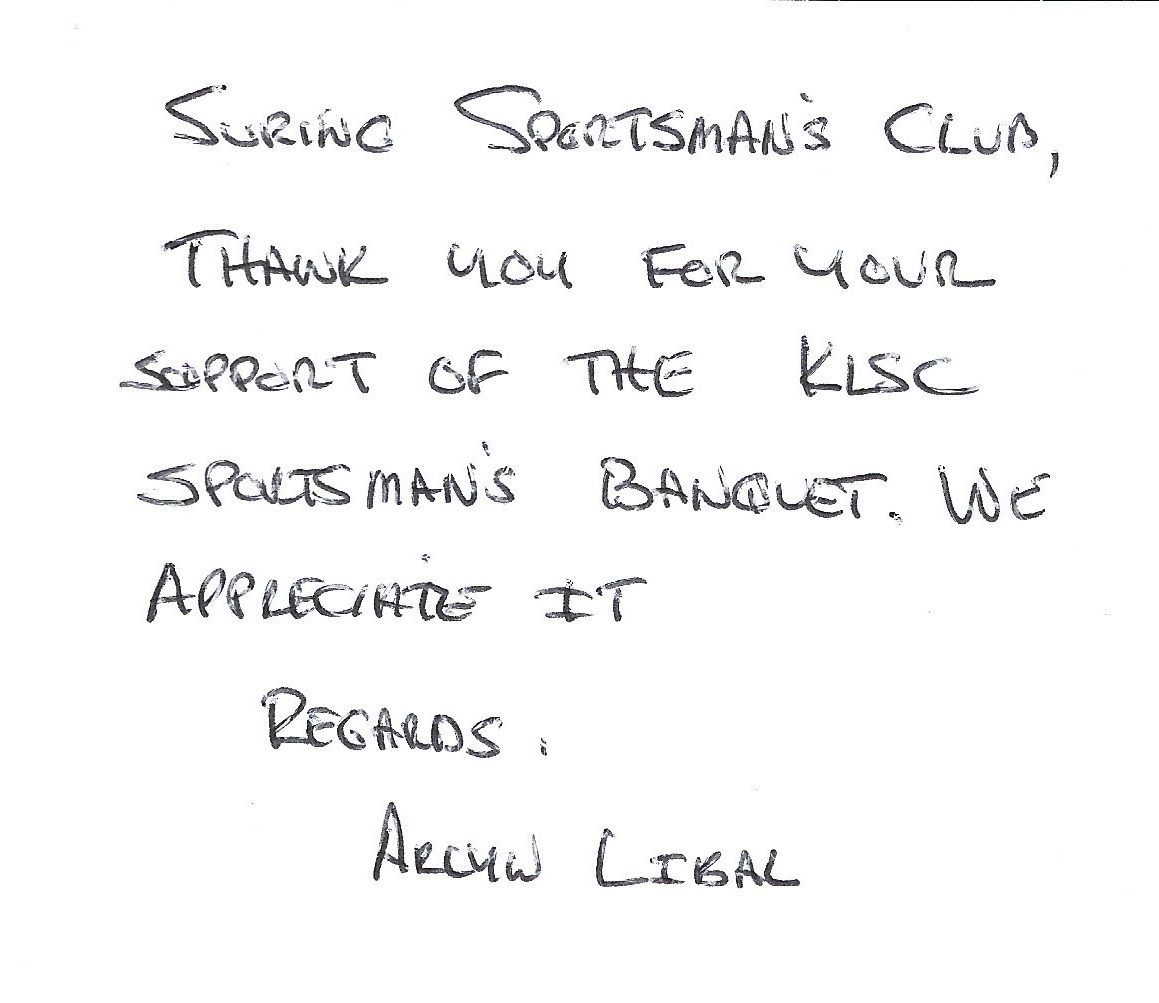 SURING SPORTSMAN'S CLUB,
THANK YOU FOR YOUR
SUPPORT OF THE KLSC
SPORTSMAN'S BANQUET. WE
APPRECIATE IT
REGARDS.
LIBAL